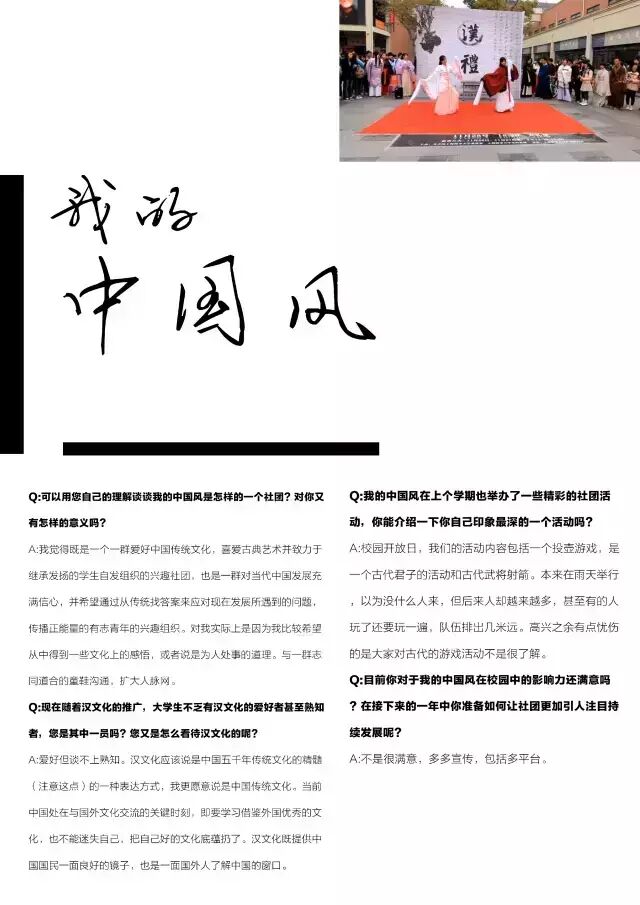 漢
禮
我的
中国风
Q:可以用您自己的理解谈谈我的中国风是怎样的一个社团？对你又
有怎样的意义吗？
A:我觉得既是一个一群爱好中国传统文化，喜爱古典艺术并致力于
继承发扬的学生自发组织的兴趣社团，也是一群对当代中国发展充
满信心，并希望通过从传统找答案来应对现在发展所遇到的问题，
传播正能量的有志青年的兴趣组织。对我实际上是因为我比较希望
从中得到一些文化上的感悟，或者说是为人处事的道理。与一群志
同道合的童鞋沟通，扩大人脉网。
Q:现在随着汉文化的推广，大学生不乏有汉文化的爱好者甚至熟知
者，您是其中一员吗？您又是怎么看待汉文化的呢？
A:爱好但谈不上熟知。汉文化应该说是中国五千年传统文化的精髓
（注意这点）的一种表达方式，我更愿意说是中国传统文化。当前
中国处在与国外文化交流的关键时刻，即要学习借鉴外国优秀的文
化，也不能迷失自己，把自己好的文化底蕴扔了。汉文化既提供中
国国民一面良好的镜子，也是一面国外人了解中国的窗口。
Q:我的中国风在上个学期也举办了一些精彩的社团活
动，你能介绍一下你自己印象最深的一个活动吗？
A:校园开放日，我们的活动内容包括一个投壶游戏，是
一个古代君子的活动和古代武将射箭。本来在雨天举行
，以为没什么人来，但后来人却越来越多，甚至有的人
玩了还要玩一遍，队伍排出几米远。高兴之余有点忧伤
的是大家对古代的游戏活动不是很了解。
Q:目前你对于我的中国风在校园中的影响力还满意吗
？在接下来的一年中你准备如何让社团更加引人注目持
续发展呢？
A:不是很满意，多多宣传，包括多平台。